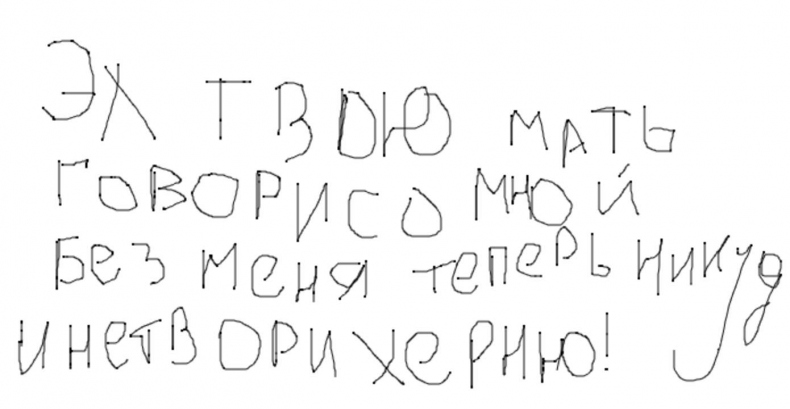 Эх ТВОЮ мАТЬ
ГОВОРИ СО мНОЙ
Без меня теперь никуд
и не твори херню!